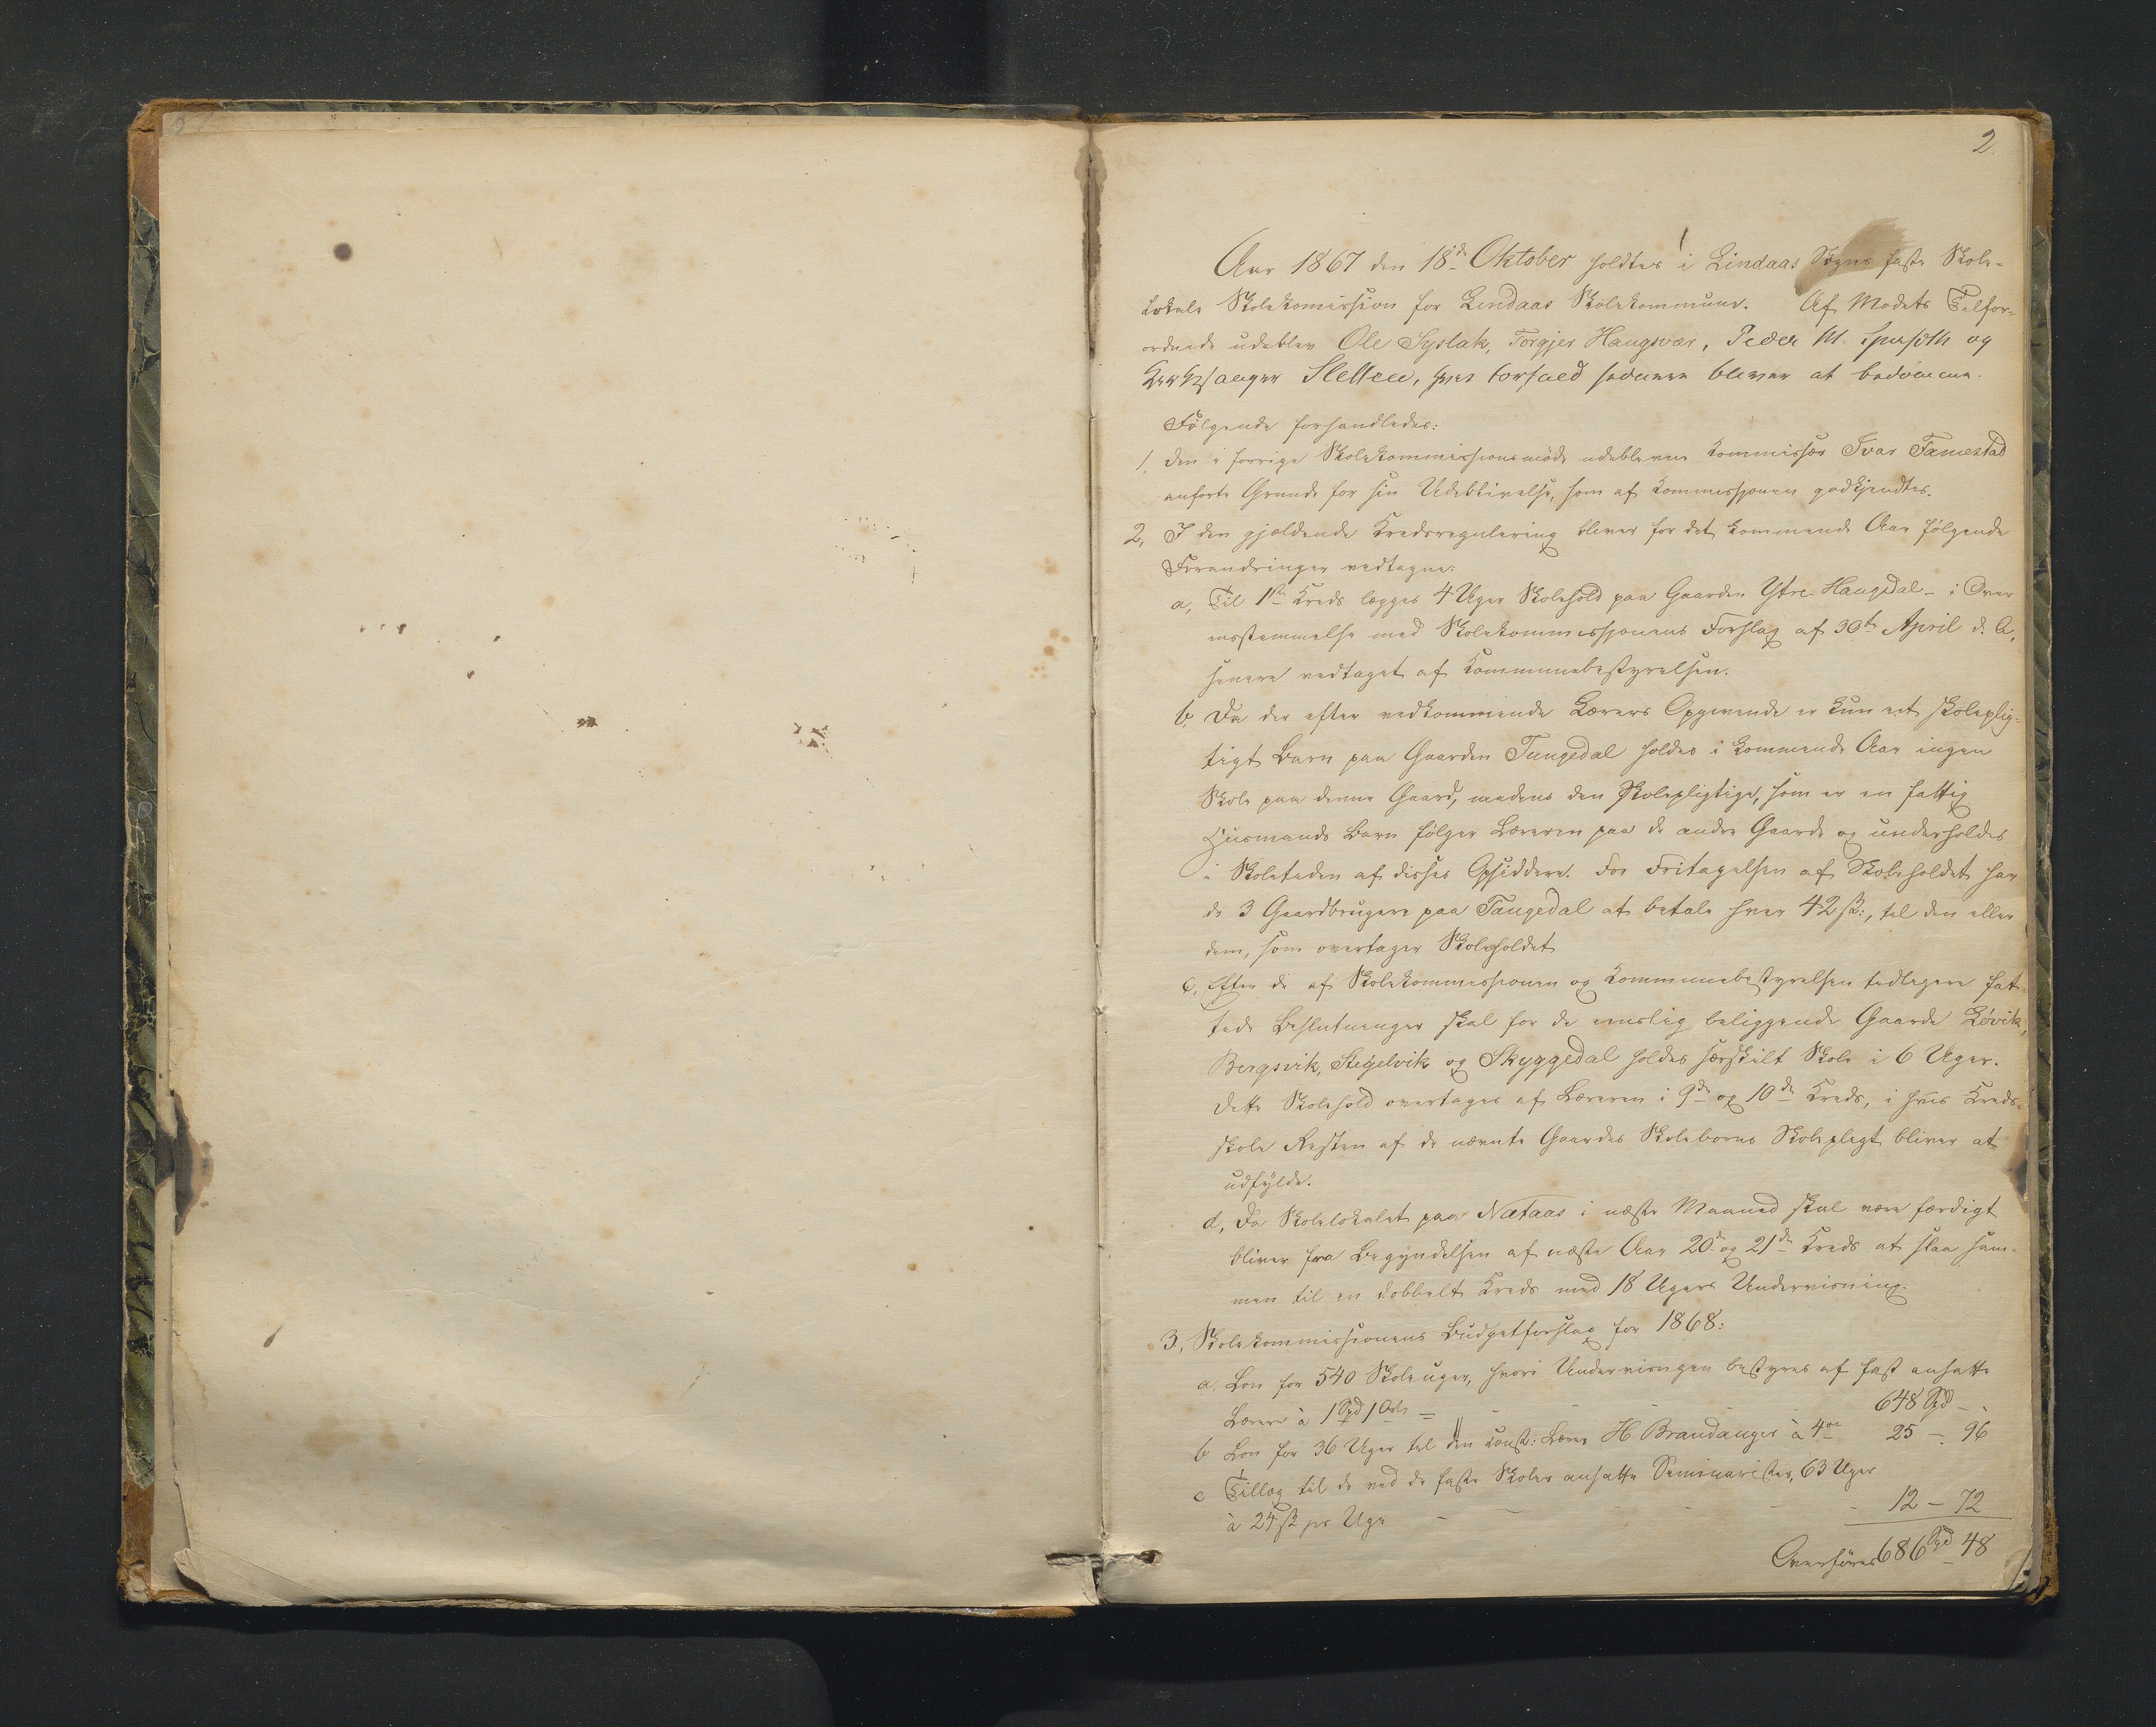 2.
Aar 1867 den 18de Oktober holdtes i Lindaas Sogns faste Skole-
lokale Skolekomission for Lindaas Skolekommune. Af Mødets Tilfor-
ordnede udeblev Ole Syslak, Torgjer Haugsvær, Peder M. og
Kirkesanger Sletten, hvis Forfald senere bliver at bedömme.
Fölgende forhandledes:
1, Den i forrige Skolekommissionsmöde udeblevne Kommissær Ivar Famestad
anførte Grunde for sin Udeblivelse, som af Kommissionen godkjendtes.
2, I den gjældende Kredsregulering bliver for det kommende Aar fölgende
Forandringer vedtagne:
a, Til 1ste Kreds lægges 4 Uger Skolehold paa Gaarden Ytre-Haugsdal - i Over
ensstemmelse med Skolekommissionens Forslag af 30te April d. A.
senere vedtaget af Kommunebestyrelsen.
b, Da der efter vedkommende Lærers Opgivende er kun eet skoleplig-
tigt Barn paa Gaarden Tangedal holdes i kommende Aar ingen
Skole paa denne Gaard, medens den Skolepligtige, som er en fattig
Huusmands Barn fölger Læreren paa de andre Gaarde og underholdes
i Skoletiden af disses Opsiddere. For Fritagelsen af Skoleholdet har
de 3 Gaardbrugere paa Tangedal at betale hver 42 sk:, til den eller
dem, som overtager Skoleholdet
c, Efter de af Skolekommissionen og Kommunebestyrelsen tidligere fat-
tede Beslutninger skal for de enslig beliggende Gaarde Lövik,
Bergsvik, Stegelvik og Skyggedal holdes særskilt Skole i 6 Uger.
Dette Skolehold overtages af Læreren i 9de og 10de Kreds, i hvis Kreds-
skole Resten af de nævnte Gaardes Skolebørns Skolepligt bliver at
udfylde.
d, Da Skolelokalet paa Nætaas i næste Maaned skal være færdigt
bliver fra Begyndelsen af næste Aar 20de og 21de Kreds at slaa sam-
men til en dobbelt Kreds med 18 Ugers Undervisning.
3, Skolekommissionens Budgetforslag for 1868:
a. Løn for 540 Skoleuger, hvori Undervisningen bestyres af fast ansatte
Lærere à 1 Spd 1 Ort = - - - - 648 Spd - -
b Løn for 36 Uger til den konst: Lærer H Brandanger à 4 ort 25 - 96
c Tillæg til de ved de faste Skoler ansatte Seminarister, 63 Uger
à 24 sk pr Uge - - - - - 12 - 72
Overføres 686 Spd 48